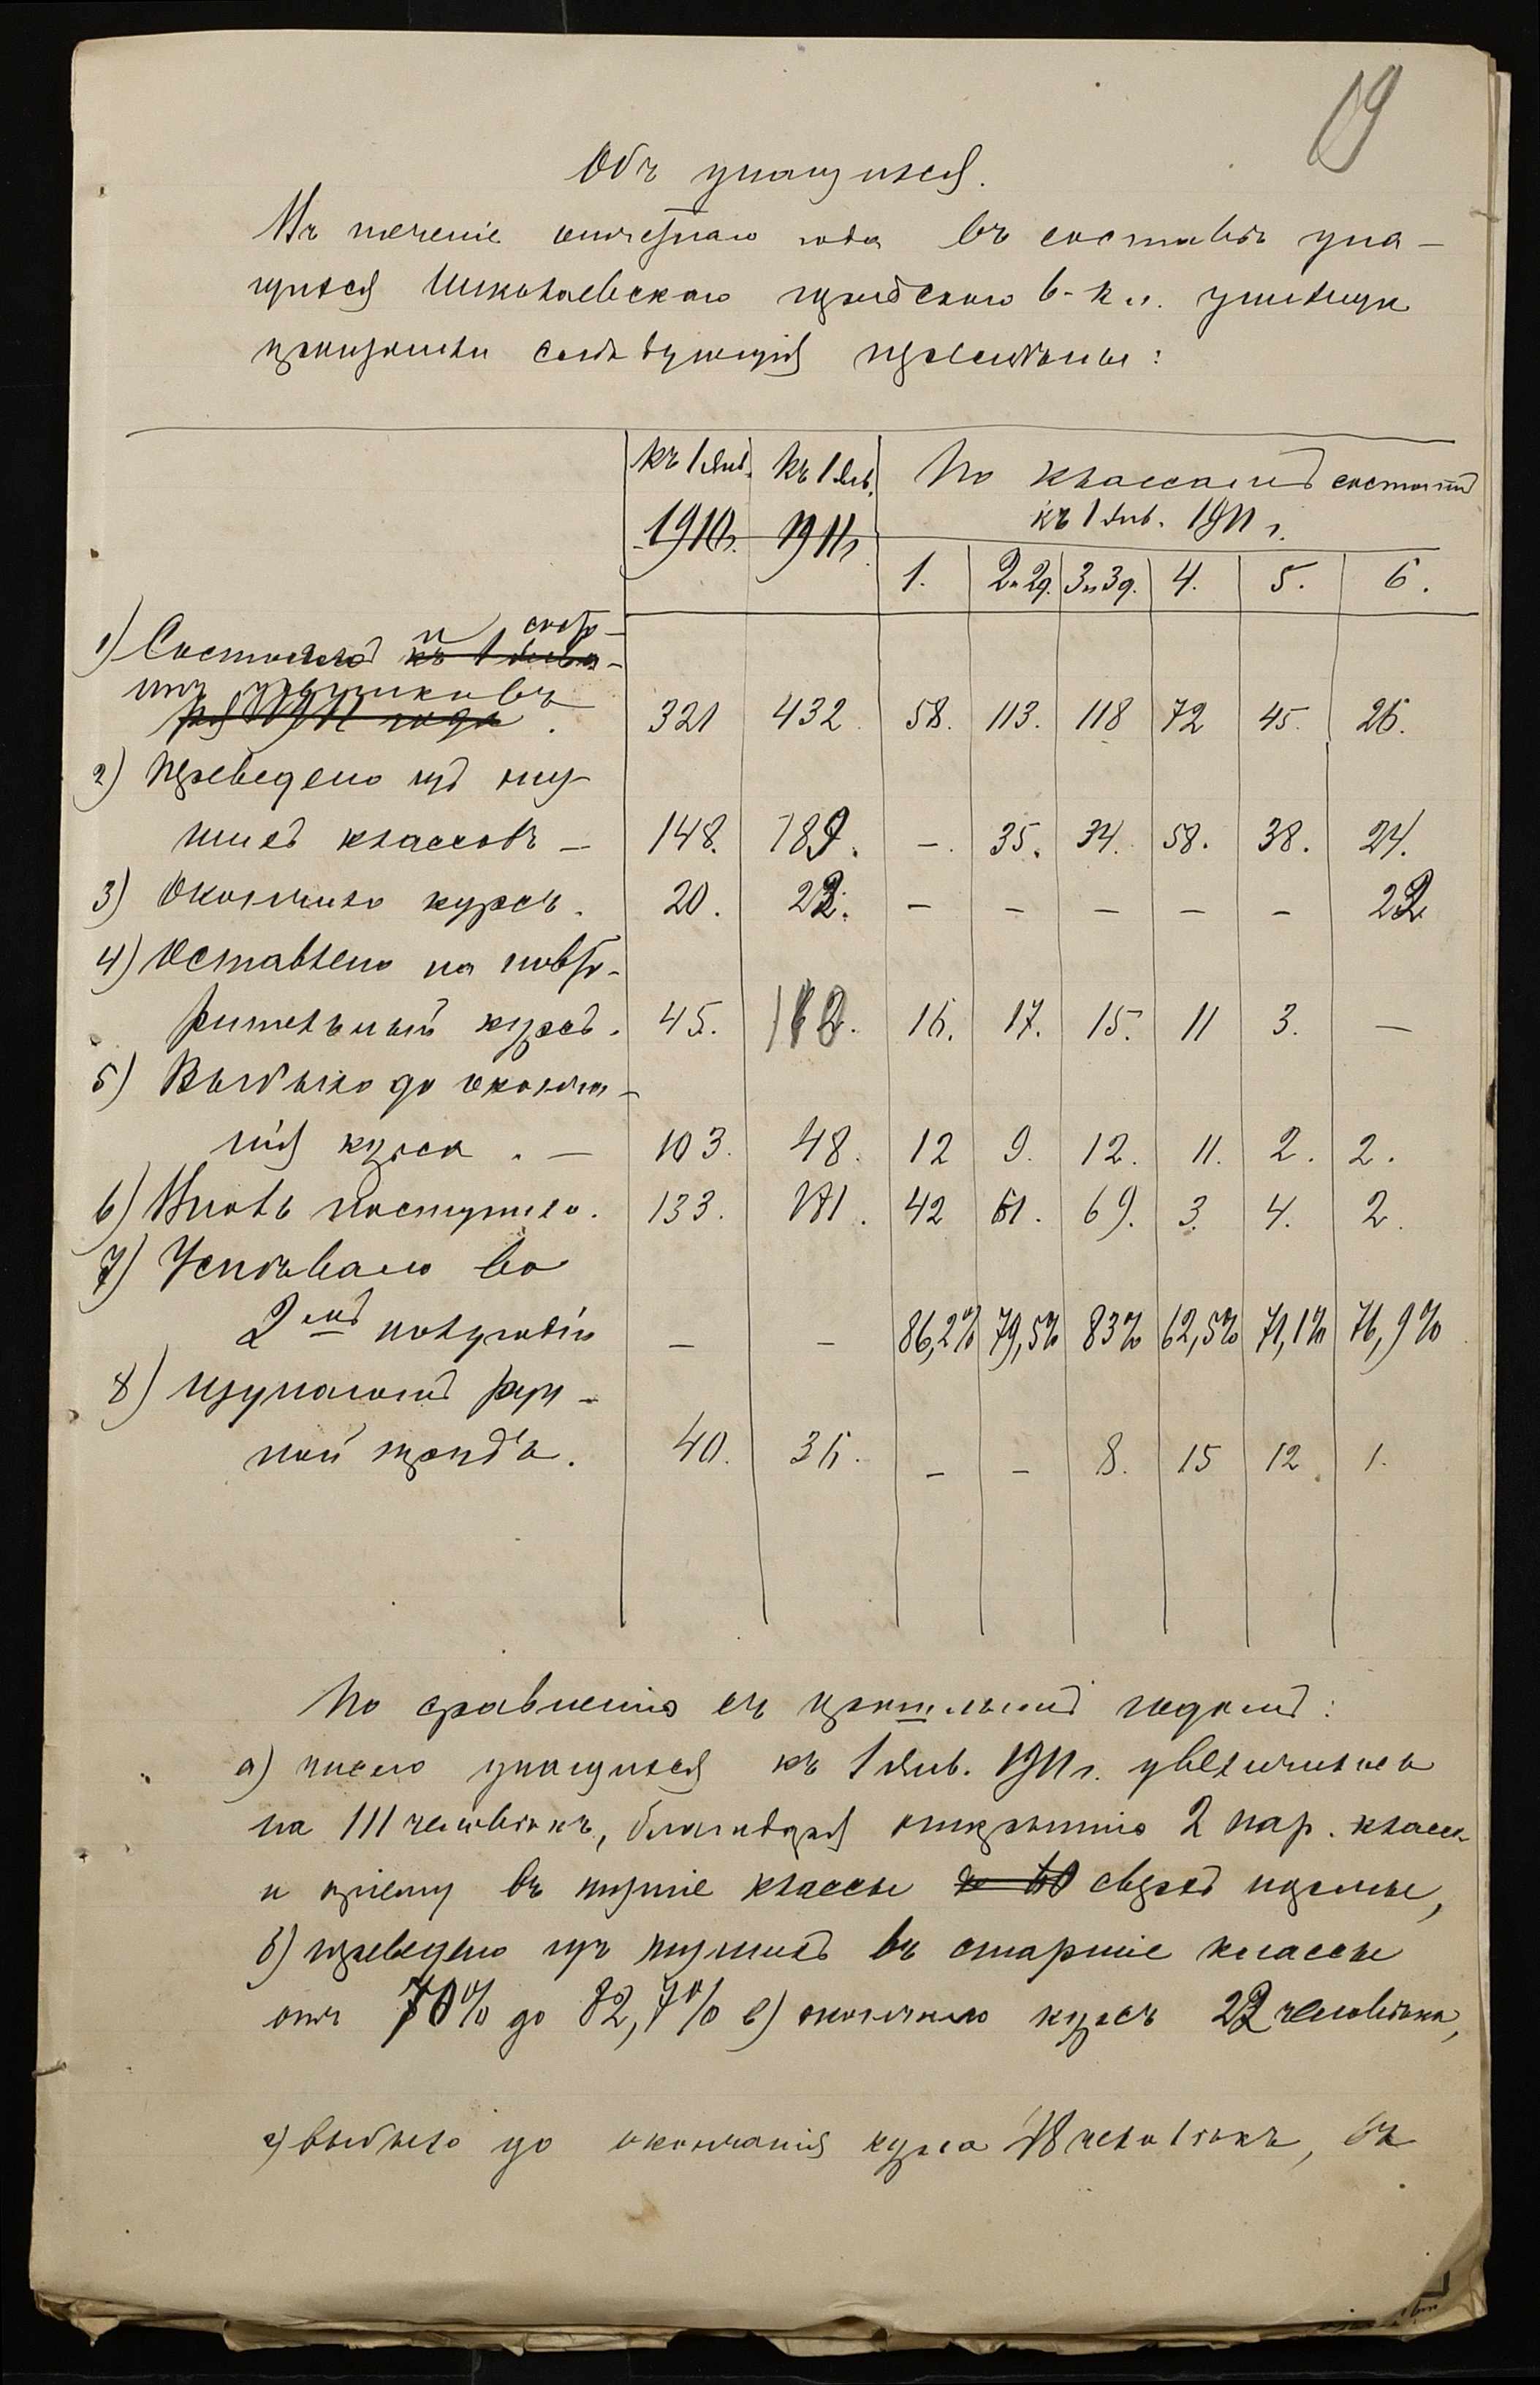 19
Объ учащихся.
Въ теченіе отчетнаго года въ составѣ уча-
щихся Николаевскаго городского 6-кл. училища
произошли слѣдующія перемѣны:
къ 1 Янв. 1910 г. къ 1 Янв. 1911 г. По классамъ состоитъ
къ 1 Янв. 1911 г.
1. 2 и 2д. 3 и 3д. 4. 5. 6.
1) Состояло къ 1 Янва-
ря 1911 года.
учениковъ
321 432. 58. 113. 118 72 45. 26.
2) Переведено изъ низ-
шихъ классовъ – 148. 189. –. 35. 34. 58. 38. 24.
3) Окончило курсъ. 20. 22. – – – – – 22
4) Оставлено на повто-
рительный курсъ. 45. 62. 16. 17. 15. 11 3. –
5) Выбыло до оконча-
нія курса. – 103. 48. 12 9. 12. 11. 2. 2.
6) Вновь поступило. 133. 181. 42 61. 69. 3. 4. 2.
7) Успѣвало во
2-мъ полугодіи – – 86,2% 79,5% 83% 62,5% 71,1% 76,9%
8) Изучаютъ руч-
ной трудъ. 40. 36. – – 8. 15 12. 1.
По сравненію съ прошлымъ годомъ:
а) число учащихся къ 1 Янв. 1911 г. увеличилось
на 111 человѣкъ, благодаря открытію 2 пар. класс.
и пріему въ низшіе классы сверхъ нормы,
б) переведено изъ низшихъ въ старшіе классы
отъ 70% до 82,7% в) окончило курсъ 22 человѣка,
г) выбыло до окончанія курса 48 человѣкъ, въ